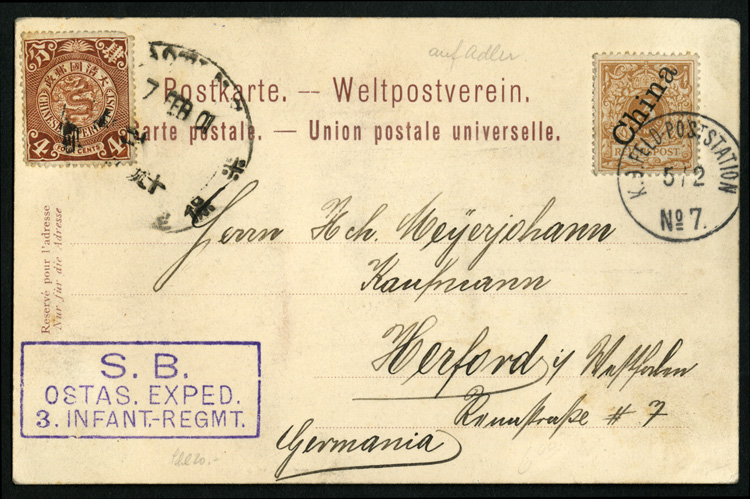 auf Adler
大清國郵政
CHINESE IMPERIAL POST
4 4
FOUR CENTS
7 FEB 01
China
REICHSPOST
Postkarte. — Weltpostverein.
Carte postale. — Union postale universelle.
K.D. FELD-POSTSTATION
5/2
No 7.
Reservé pour l'adresse
Nur für die Adresse
Herrn Hch. Meyerjohann
Kaufmann
Herford i/ Westfalen
Rennstraße # 7
Germania
S. B.
OSTAS. EXPED.
3. INFANT.-REGMT.